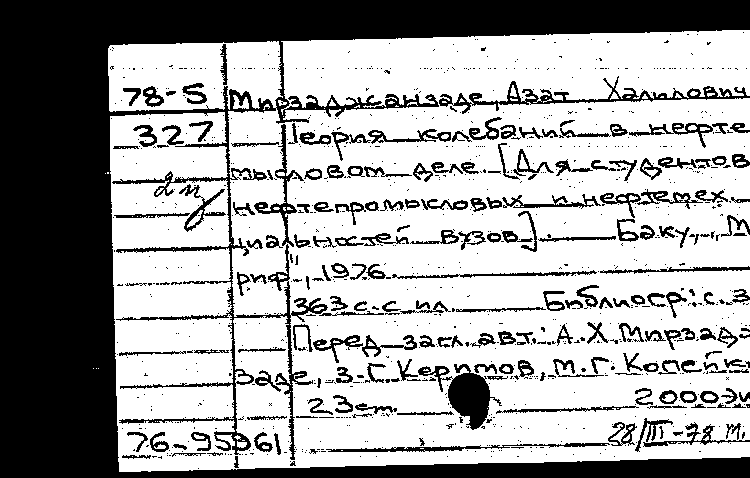 78-5 Мирзаджанзаде, Азат Халилович
327 Теория колебаний в нефте
мысловом деле. [Для студентов
2 п
нефтепромысловых и нефтемех.
циальностей вузов]. Баку, „М
риф", 1976.
363 с. с ил Библиогр.: с. 3
Перед загл. авт.: А.Х Мирзадж
заде, З.Г Керимов, М.Г. Копейк
23 см. 2000 эк
76-95961 28/III-78 м.